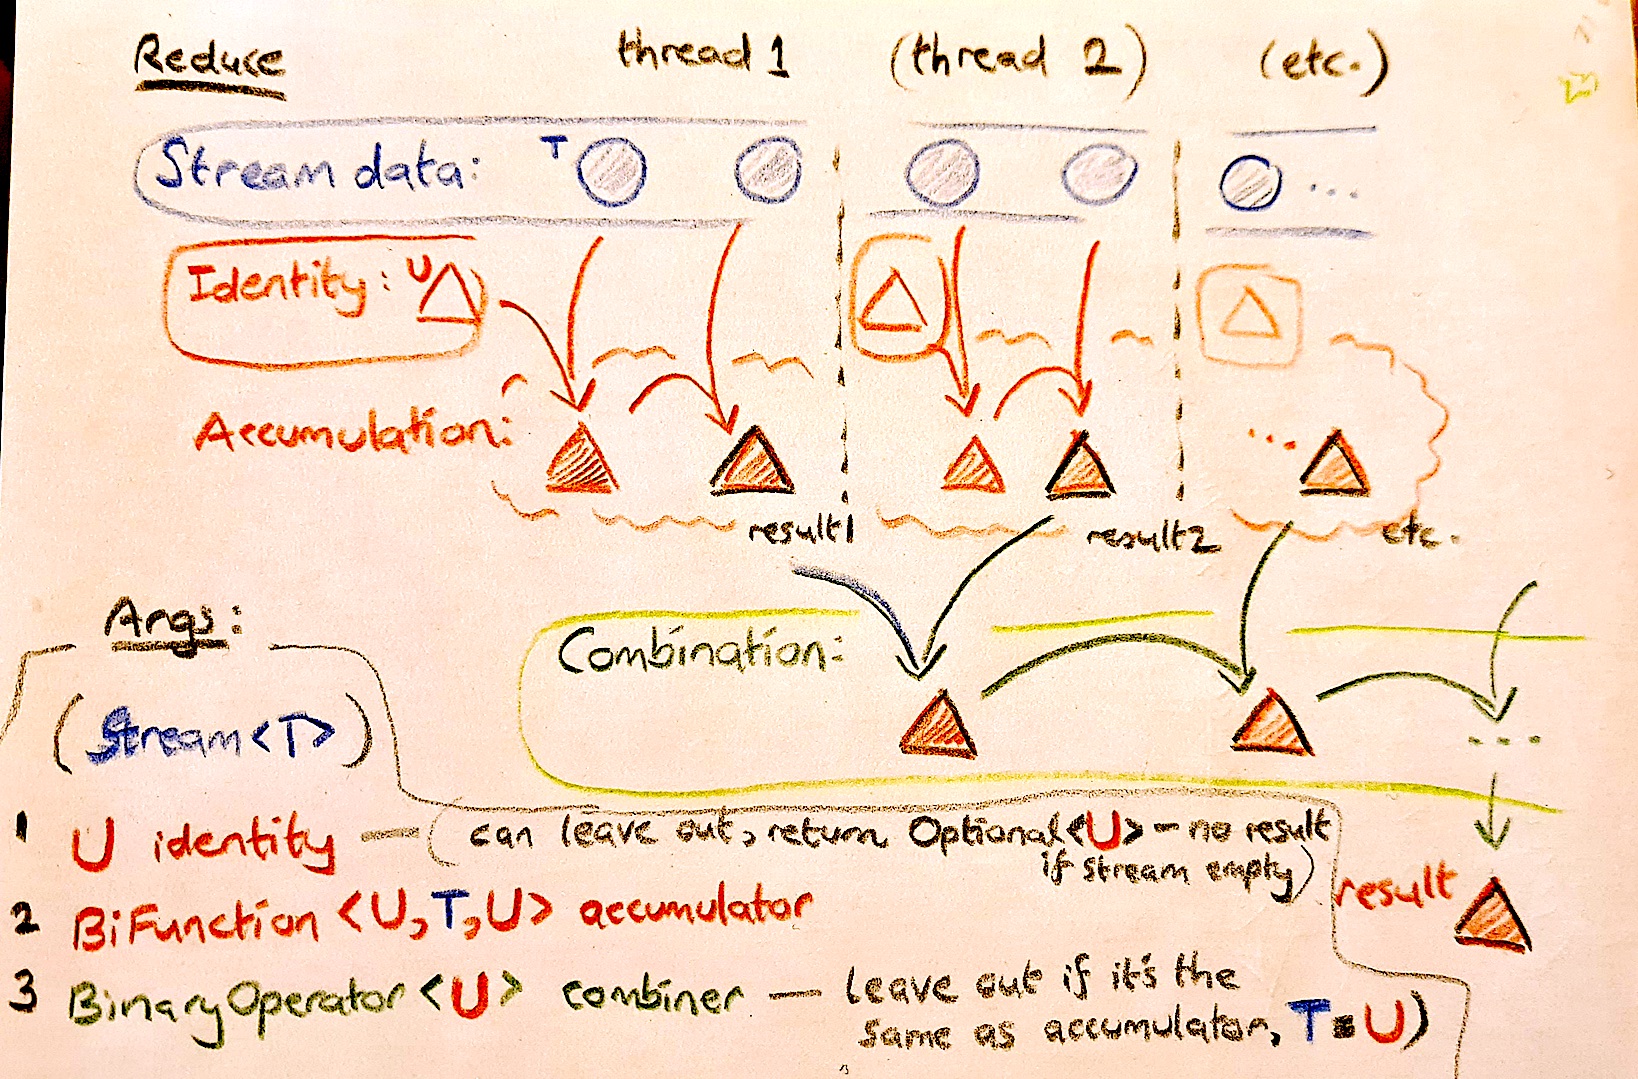 Reduce thread 1 (thread 2) (etc.)
Stream data: T ...
Identity: U
Accumulation: ...
result1 result2 etc.
Args:
Combination:
(Stream<T>) ...
1 U identity — (can leave out, return Optional<U> - no result
if stream empty)
result
2 BiFunction <U, T, U> accumulator
3 BinaryOperator <U> combiner — leave out if it's the
same as accumulator, T = U)